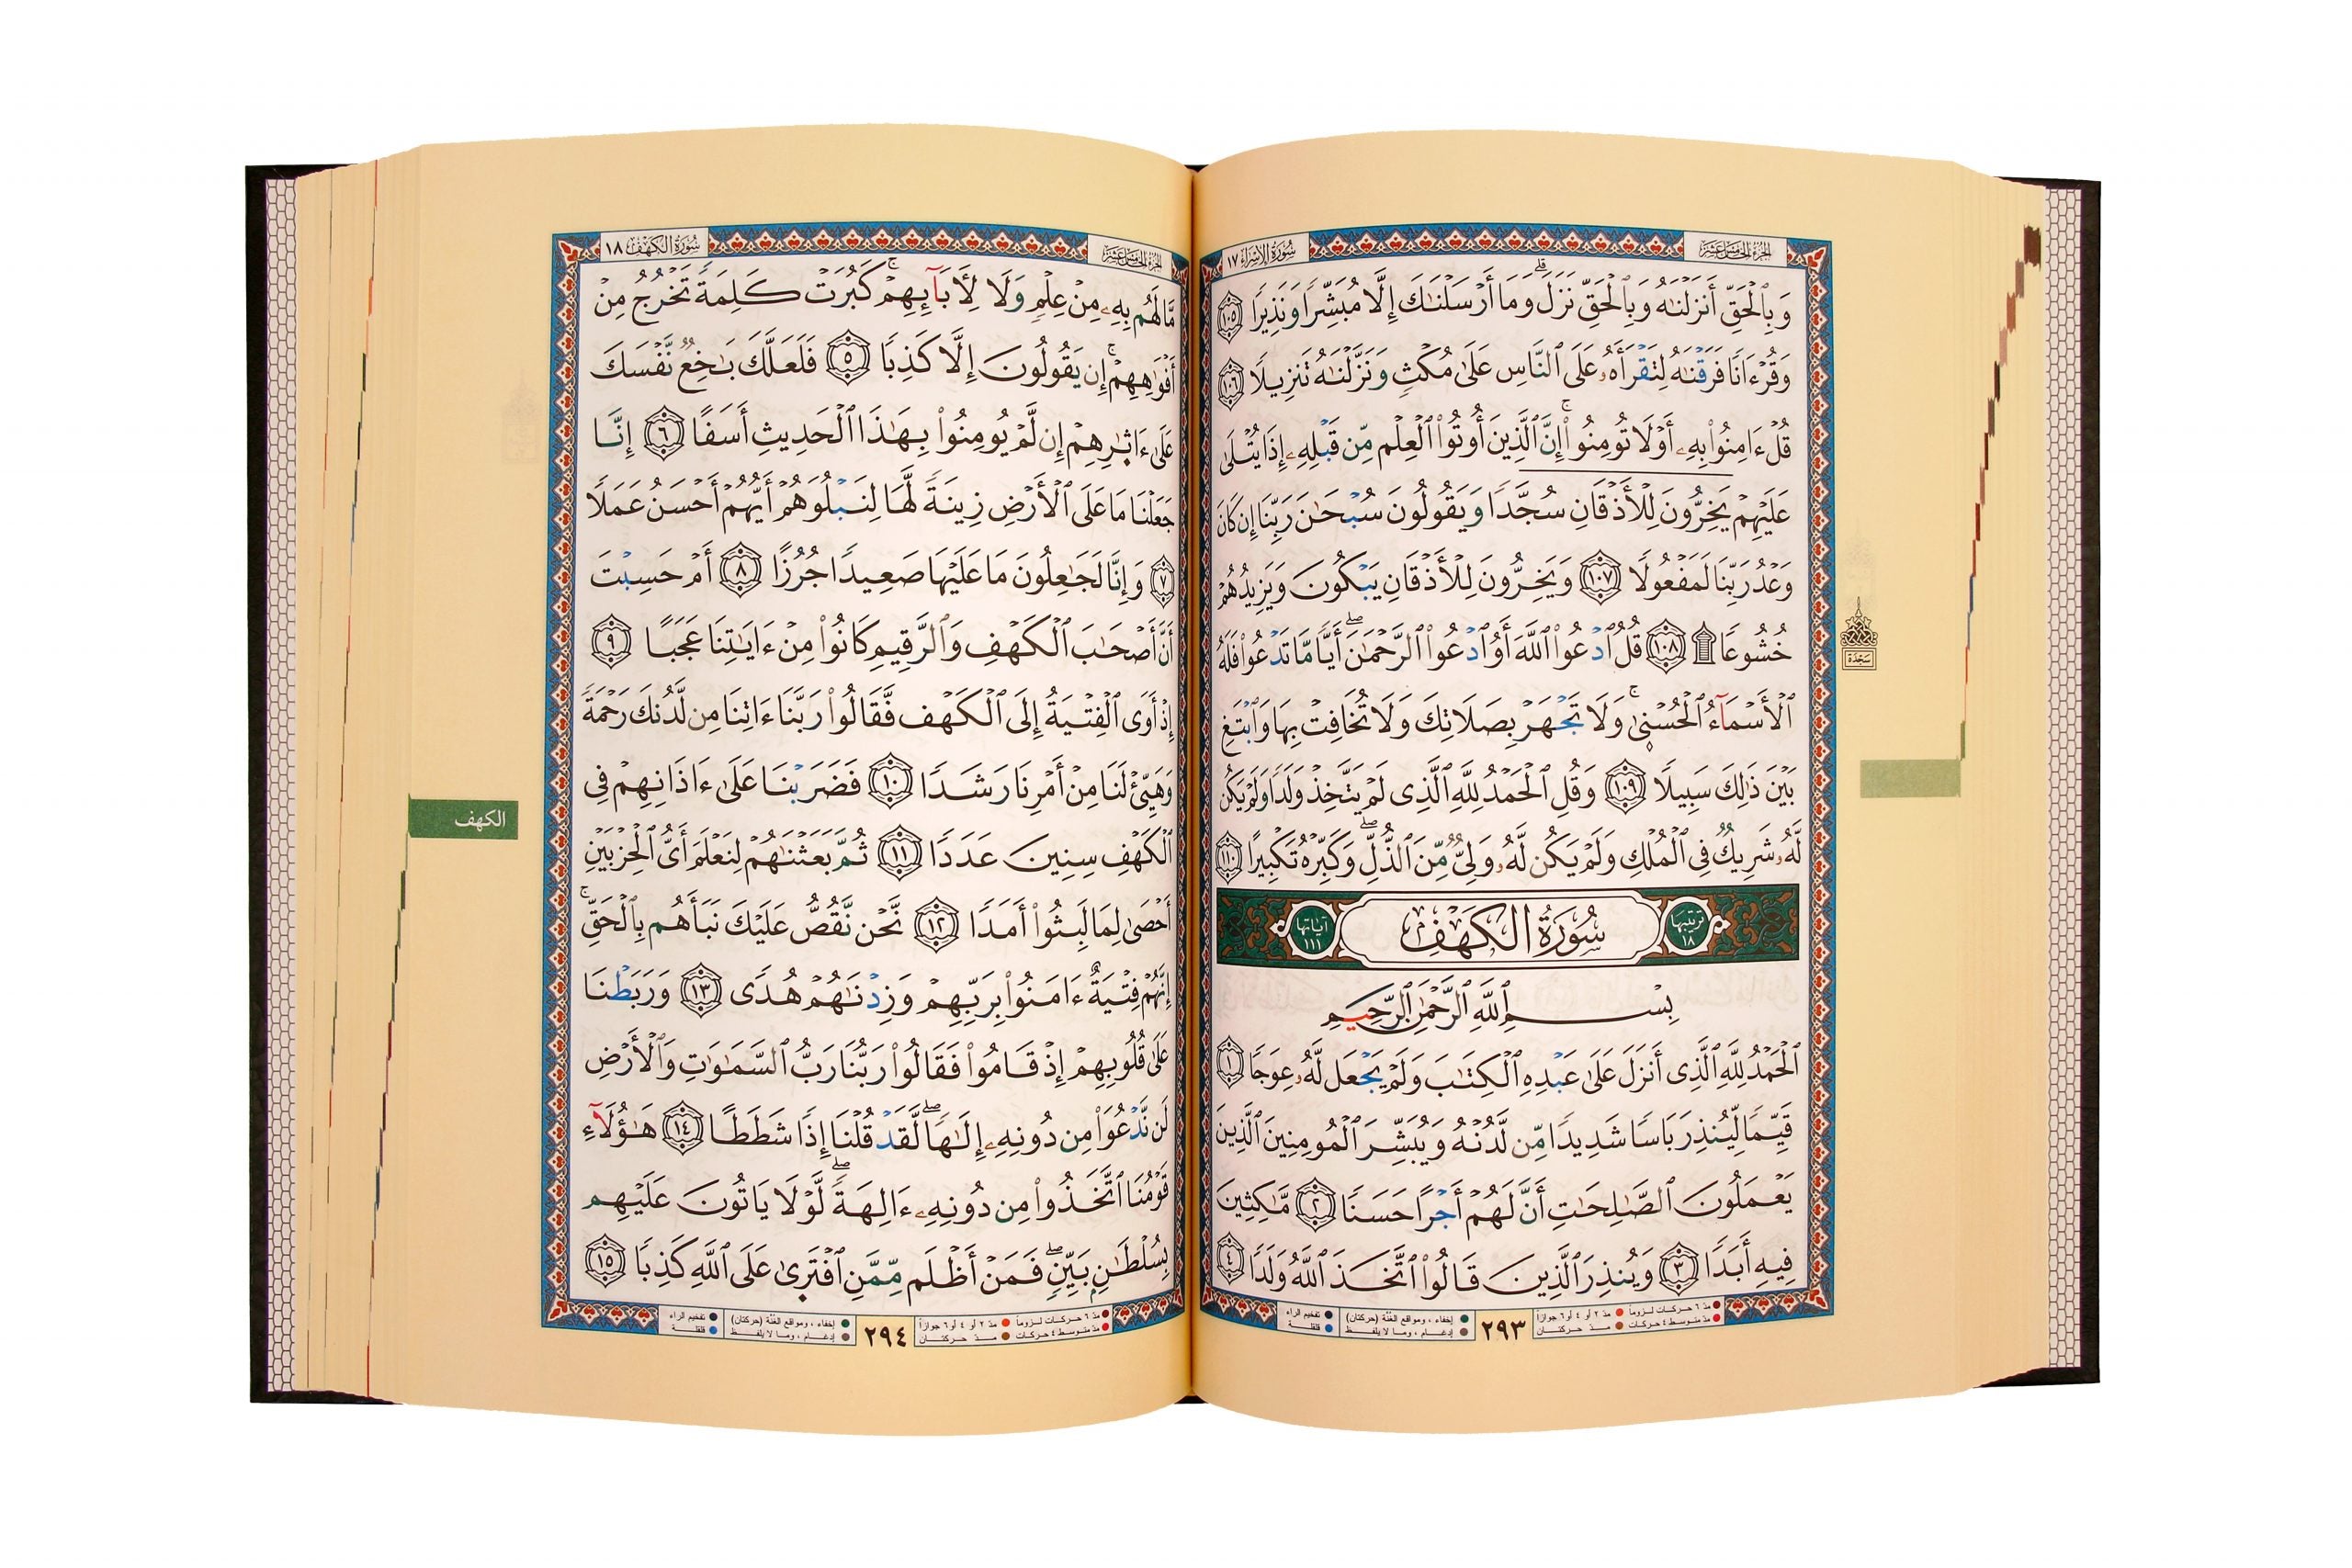 الجزء الخامس عشر
سُورَةُ الإِسْرَاءِ ١٧
وَبِٱلْحَقِّ أَنزَلْنَٰهُ وَبِٱلْحَقِّ نَزَلَ ۗ وَمَا أَرْسَلْنَٰكَ إِلَّا مُبَشِّرًا وَنَذِيرًا ١٠٥
وَقُرْءَانًا فَرَقْنَٰهُ لِتَقْرَأَهُۥ عَلَى ٱلنَّاسِ عَلَىٰ مُكْثٍ وَنَزَّلْنَٰهُ تَنزِيلًا ١٠٦
قُلْ ءَامِنُوا۟ بِهِۦ أَوْ لَا تُومِنُوا۟ ۚ إِنَّ ٱلَّذِينَ أُوتُوا۟ ٱلْعِلْم مِّن قَبْلِهِۦ إِذَا يُتْلَىٰ
عَلَيْهِمْ يَخِرُّونَ لِلْأَذْقَانِ سُجَّدًا وَيَقُولُونَ سُبْحَٰنَ رَبِّنَا إِن كَانَ
وَعْدُ رَبِّنَا لَمَفْعُولًا ١٠٧ وَيَخِرُّونَ لِلْأَذْقَانِ يَبْكُونَ وَيَزِيدُهُمْ
خُشُوعًا ۩ ١٠٨ قُلُ ٱدْعُوا۟ ٱللَّهَ أَوُ ٱدْعُوا۟ ٱلرَّحْمَٰنَ ۖ أَيًّا مَّا تَدْعُوا۟ فَلَهُ
ٱلْأَسْمَآءُ ٱلْحُسْنَىٰ ۚ وَلَا تَجْهَرْ بِصَلَاتِكَ وَلَا تُخَافِتْ بِهَا وَٱبْتَغِ
بَيْنَ ذَٰلِكَ سَبِيلًا ١٠٩ وَقُلِ ٱلْحَمْدُ لِلَّهِ ٱلَّذِى لَمْ يَتَّخِذْ وَلَدًا وَلَمْ يَكُن
لَّهُۥ شَرِيكٌ فِى ٱلْمُلْكِ وَلَمْ يَكُن لَّهُۥ وَلِىٌّ مِّنَ ٱلذُّلِّ ۖ وَكَبِّرْهُ تَكْبِيرًا ١١٠
ترتيبها ١٨
سُورَةُ الكَهْفِ
آياتها ١١١
بِسْمِ ٱللَّهِ ٱلرَّحْمَٰنِ ٱلرَّحِيمِ
ٱلْحَمْدُ لِلَّهِ ٱلَّذِى أَنزَلَ عَلَىٰ عَبْدِهِ ٱلْكِتَٰبَ وَلَمْ يَجْعَل لَّهُۥ عِوَجًا ١
قَيِّمًا لِّيُنذِرَ بَاسًا شَدِيدًا مِّن لَّدُنْهُ وَيُبَشِّرَ ٱلْمُومِنِينَ ٱلَّذِينَ
يَعْمَلُونَ ٱلصَّٰلِحَٰتِ أَنَّ لَهُمْ أَجْرًا حَسَنًا ٢ مَّٰكِثِينَ
فِيهِ أَبَدًا ٣ وَيُنذِرَ ٱلَّذِينَ قَالُوا۟ ٱتَّخَذَ ٱللَّهُ وَلَدًا ٤
مدّ ٦ حركات لزوماً مدّ ٢ أو ٤ أو ٦ جوازاً
مدّ متوسط ٤ حركات مدّ حركتان
٢٩٣
إخفاء، ومواقع الغنّة (حركتان)
إدغام، وما لا يلفظ
تفخيم الراء
قلقلة
سَجْدَة
الجزء الخامس عشر
سُورَةُ الكَهْفِ ١٨
مَّا لَهُم بِهِۦ مِنْ عِلْمٍ وَلَا لِأَبَآئِهِمْ ۚ كَبُرَتْ كَلِمَةً تَخْرُجُ مِنْ
أَفْوَٰهِهِمْ ۚ إِن يَقُولُونَ إِلَّا كَذِبًا ٥ فَلَعَلَّكَ بَٰخِعٌ نَّفْسَكَ
عَلَىٰ ءَاثَٰرِهِمْ إِن لَّمْ يُومِنُوا۟ بِهَٰذَا ٱلْحَدِيثِ أَسَفًا ٦ إِنَّا
جَعَلْنَا مَا عَلَى ٱلْأَرْضِ زِينَةً لَّهَا لِنَبْلُوَهُمْ أَيُّهُمْ أَحْسَنُ عَمَلًا
٧ وَإِنَّا لَجَٰعِلُونَ مَا عَلَيْهَا صَعِيدًا جُرُزًا ٨ أَمْ حَسِبْتَ
أَنَّ أَصْحَٰبَ ٱلْكَهْفِ وَٱلرَّقِيمِ كَانُوا۟ مِنْ ءَايَٰتِنَا عَجَبًا ٩
إِذْ أَوَى ٱلْفِتْيَةُ إِلَى ٱلْكَهْف فَّقَالُوا۟ رَبَّنَا ءَاتِنَا مِن لَّدُنكَ رَحْمَةً
وَهَيِّئْ لَنَا مِنْ أَمْرِنَا رَشَدًا ١٠ فَضَرَبْنَا عَلَىٰ ءَاذَانِهِمْ فِى
ٱلْكَهْفِ سِنِينَ عَدَدًا ١١ ثُمَّ بَعَثْنَٰهُمْ لِنَعْلَمَ أَىُّ ٱلْحِزْبَيْنِ
أَحْصَىٰ لِمَا لَبِثُوا۟ أَمَدًا ١٢ نَّحْن نَّقُصُّ عَلَيْكَ نَبَأَهُم بِٱلْحَقِّ ۚ
إِنَّهُمْ فِتْيَةٌ ءَامَنُوا۟ بِرَبِّهِمْ وَزِدْنَٰهُمْ هُدًى ١٣ وَرَبَطْنَا
عَلَىٰ قُلُوبِهِمْ إِذْ قَامُوا۟ فَقَالُوا۟ رَبُّنَا رَبُّ ٱلسَّمَٰوَٰتِ وَٱلْأَرْضِ
لَن نَّدْعُوَا۟ مِن دُونِهِۦ إِلَٰهًا ۖ لَّقَدْ قُلْنَا إِذًا شَطَطًا ١٤ هَٰؤُلَآءِ
قَوْمُنَا ٱتَّخَذُوا۟ مِن دُونِهِۦ ءَالِهَةً ۖ لَّوْلَا يَاتُونَ عَلَيْهِم
بِسُلْطَٰنٍ بَيِّنٍ ۖ فَمَنْ أَظْلَم مِّمَّنِ ٱفْتَرَىٰ عَلَى ٱللَّهِ كَذِبًا ١٥
مدّ ٦ حركات لزوماً مدّ ٢ أو ٤ أو ٦ جوازاً
مدّ متوسط ٤ حركات مدّ حركتان
٢٩٤
إخفاء، ومواقع الغنّة (حركتان)
إدغام، وما لا يلفظ
تفخيم الراء
قلقلة
الكهف